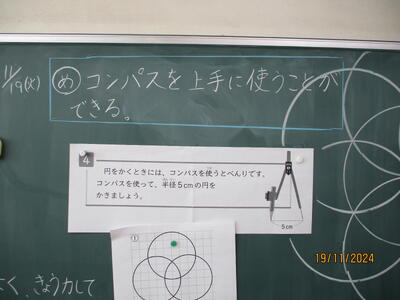 11/19(火)
め コンパスを上手に使うことが
できる。
4
円をかくときには、コンパスを使うとべんりです。
コンパスを使って、半径5cmの円を
かきましょう。
5cm
1
く、きょう力して
19/11/2024